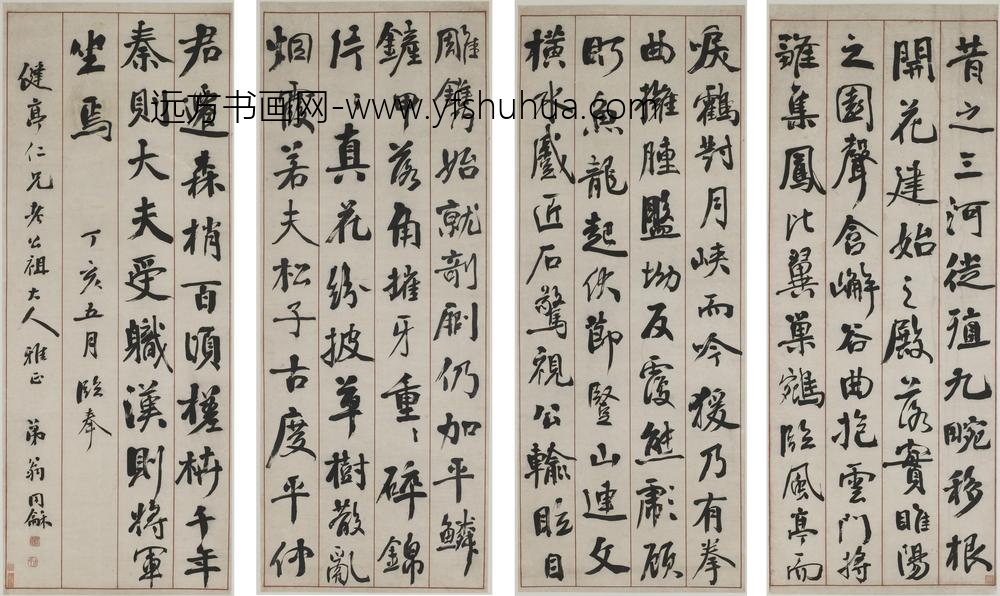 昔之三河徙殖九畹移根
開花建始之殿落實睢陽
之園聲含嶰谷曲抱雲門將
雛集鳳比翼巢鵷臨風亭而
唳鶴對月峽而吟猨乃有拳
曲擁腫盤坳反覆熊彪顧
盼魚龍起伏節豎山連文
橫水蹙匠石驚視公輸眩目
雕鐫始就剞劂仍加平鱗
鏟甲落角摧牙重〻碎錦
片〻真花紛披草樹散亂
烟霞若夫松子古度平仲
君遷森梢百頃槎枿千年
秦則大夫受職漢則將軍
坐焉
丁亥五月臨奉
健亭仁兄老公祖大人雅正 弟翁同龢
远方书画网-www.yfshuhua.com